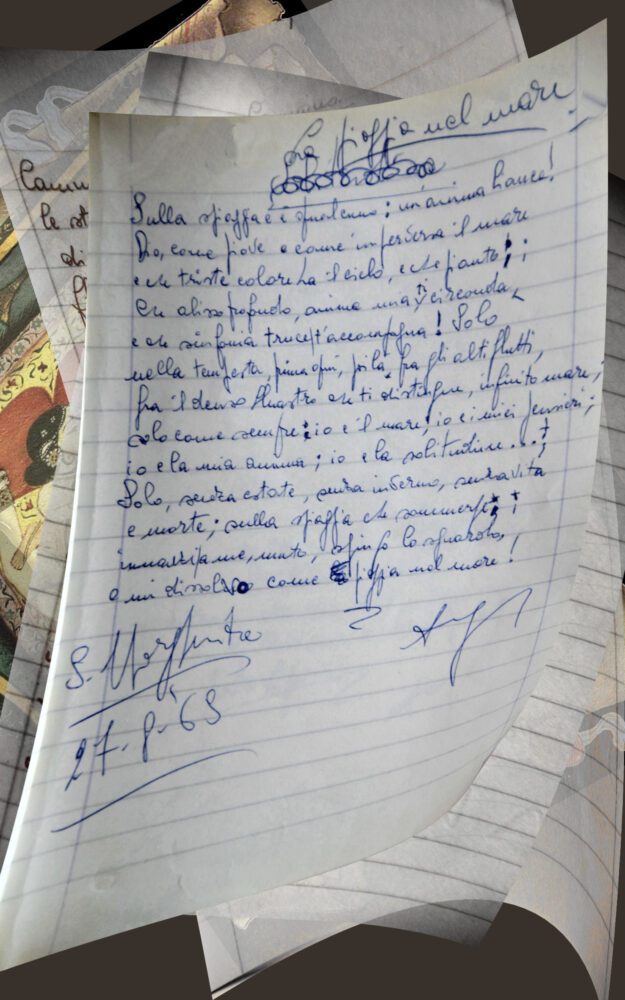 La pioggia nel mare
Sulla spiaggia c'è qualcuno: un'anima stanca!
Dio, come piove e come imperversa il mare
e che triste colore ha il cielo, e che pianto;
Che abisso profondo, anima mia, ti circonda,
e che sinfonia truce t'accompagna! Solo
nella tempesta, prima qui, poi là, fra gli alti flutti,
fra il denso che ti distingue, infinito mare,
solo come sempre; io e il mare; io e i miei pensieri;
io e la mia anima; io e la solitudine....;
Solo, senza estate, senza inverno, senza vita
e morte; sulla spiaggia che sommerge;
innanzi a me, muto, spingo lo sguardo,
e mi dissolvo come pioggia nel mare!
S. Margherita
27-8-63
Cammi
le st
di